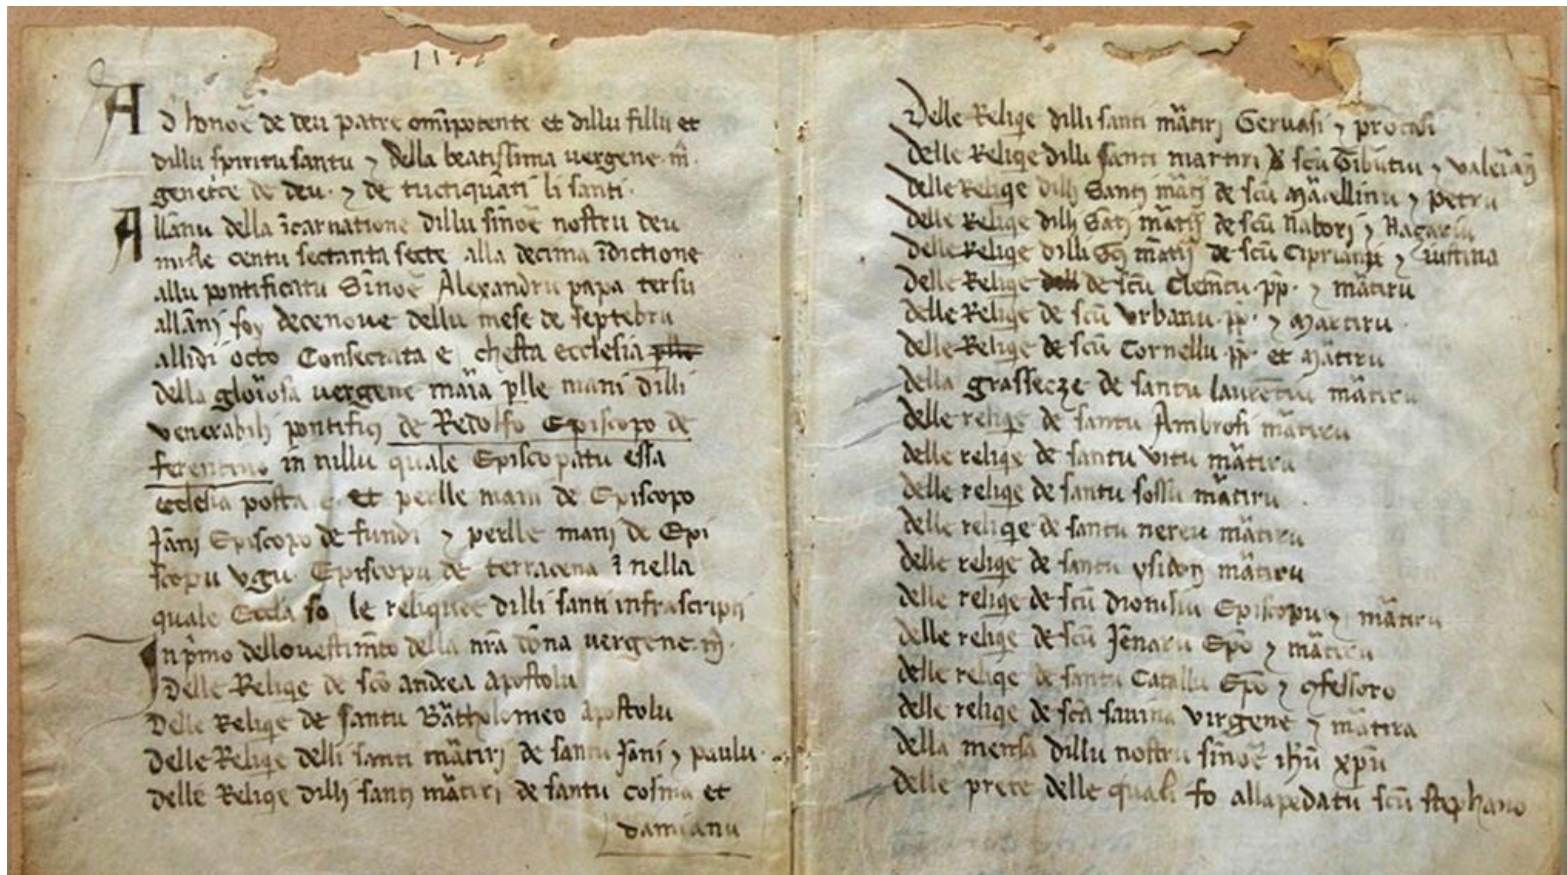 117
Ad honoē de deu patre om̄ipotente et dillu fillu et
dillu spiritu santu ⁊ della beatissima uergene m̄
genetce de deu ⁊ de tuctiquāti li santi
Allānu della īcarnatione dillu sīnoē nostru deu
mille centu sectanta secte alla decima īdictione
allu pontificatu Sīnoē Alexandru papa tersu
allānj soy decenoue dellu mese de septebru
allidi octo Consecrata e chesta ecclesia plle
della gloiosa uergene maia p̄lle mani dilli
uenerabilj pontifici de Redolfo Episcopo de
ferentino in nillu quale Episcopatu essa
ecclesia posta e et perlle mani de Episcopo
Jānj Episcopo de fundi ⁊ perlle manj de Epi
scopu vgu Episcopu de terracena ī nella
quale Eccla so le reliquee dilli santi infrascripti
In pͥmo dellouestim̄to della nr̄a dōna uergene m̄
Delle Reliqe de sc̄o andrea apostolu
Delle Reliqe de santu Bātholomeo apostolu
Delle Reliqe delli santi mātirj de santu Jāni ⁊ paulu
delle Reliqe dillj santj mātiri de santu cosma et
damianu
Delle Reliqe dilli santi mātirj Geruasi ⁊ protasi
delle Reliqe dilli santi martiri d scū Tibūtiu ⁊ ualeiānj
delle Reliqe dillj Santj mātj de scū Mācellinu ⁊ petru
delle Reliqe dillj Sātj mātij de scū Nabori ⁊ Nagariu
delle Reliqe dilli Scj mātij de scū Ciprianu ⁊ iustina
delle Reliqe de scū Clem̄tu pp̄ ⁊ mātiru
delle Reliqe de scū vrbanu pp̄ ⁊ Martiru
delle Reliqe de scū Cornellu pp̄ et Mātiru
della grasseze de santu laurētiu mātiru
delle reliqe de santu Ambrosi mātiru
delle reliqe de santu vitu mātiru
delle reliqe de santu sossu mātiru
delle reliqe de santu nereu mātiru
delle reliqe de santu ysidorj mātiru
delle reliqe de scū dionisiu Episcopu ⁊ mātiru
delle reliqe de scū Jēnaru Ep̄o ⁊ mātiru
delle reliqe de santu Catallu Ep̄o ⁊ ꝯfessoro
delle reliqe de scā sauina virgene ⁊ mātira
della mensa dillu nostru sīnoē ihū xp̄u
delle prete delle quali fo allapedatu scū stephano